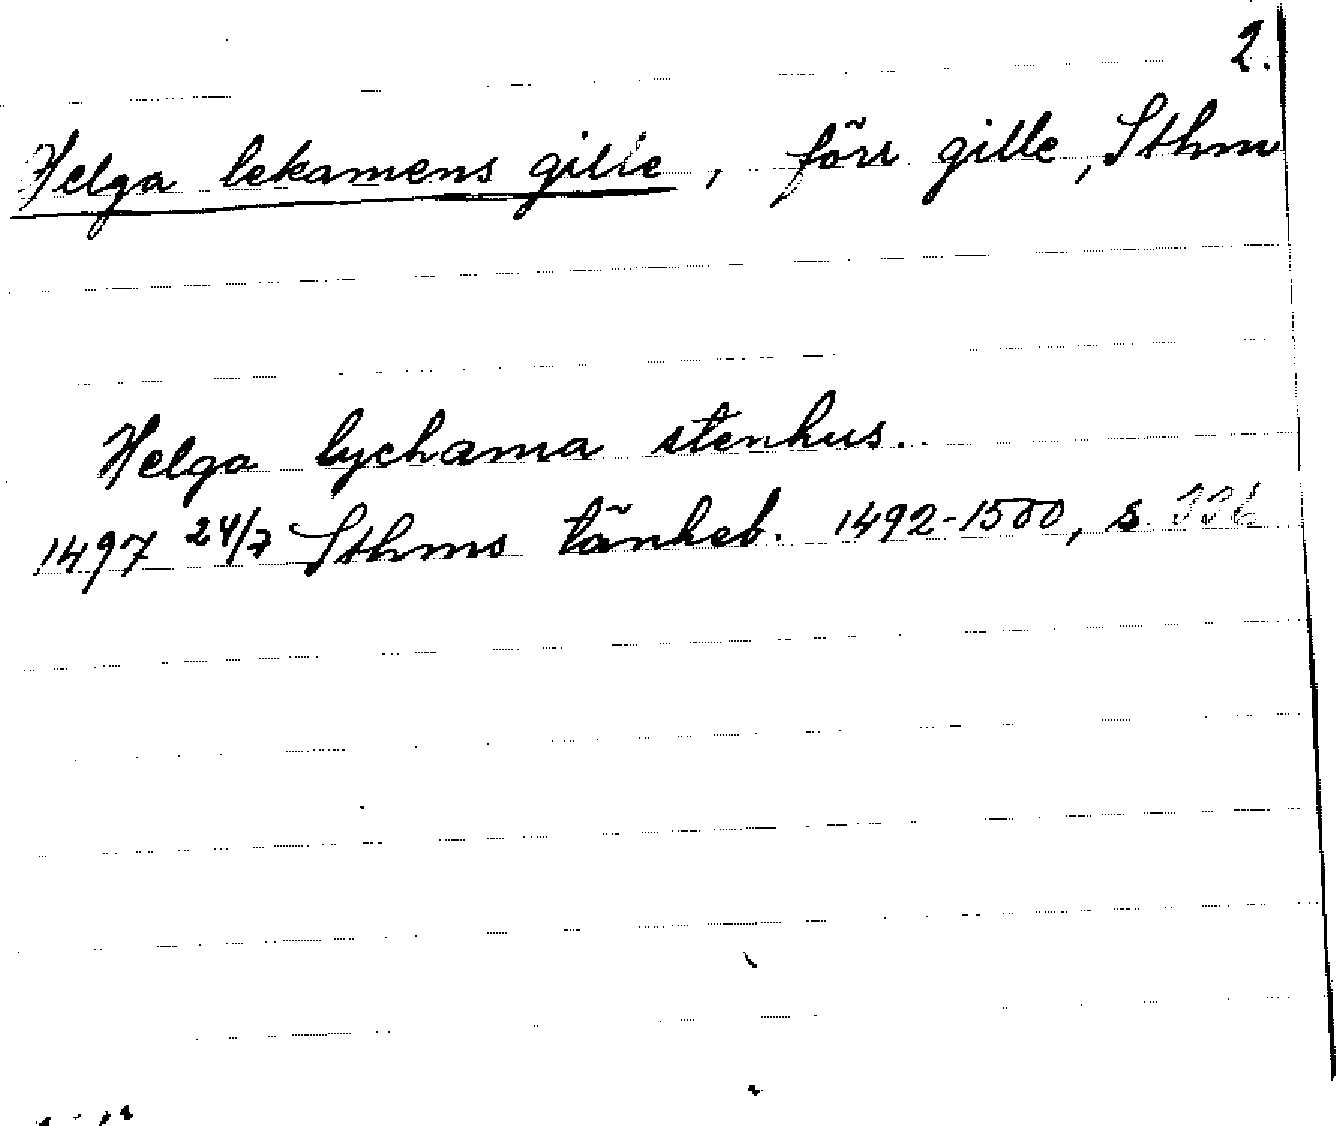 2.
Helga lekamens gille, förr gille, Sthm
Helga lychama stenhus.
1497 24/7 Sthms tänkeb. 1492-1500, s.